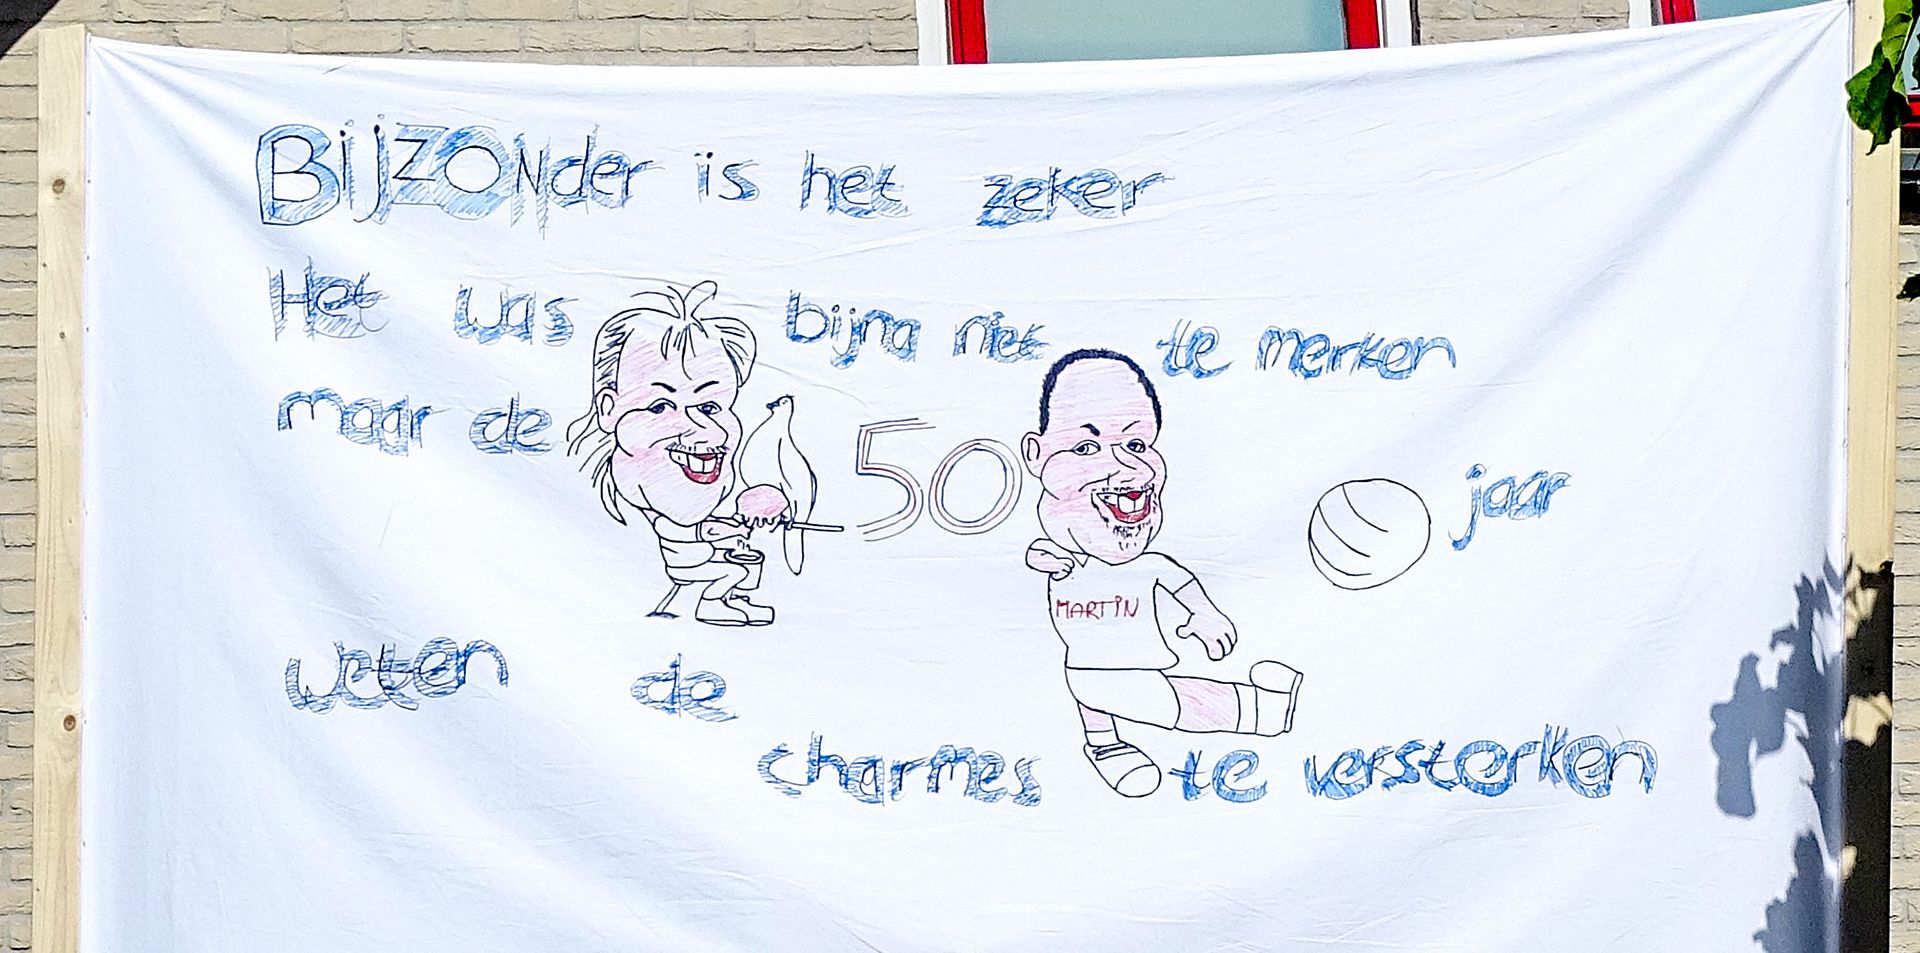 Bijzonder is het zeker
Het was bijna niet te merken
maar de 50 jaar
MARTIN
weten de charmes te versterken